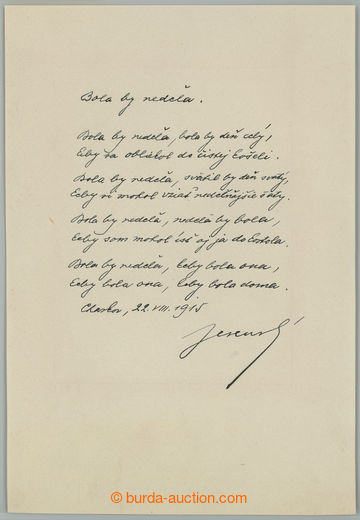 Bola by nedeľa.
Bola by nedeľa, bola by deň celý,
keby sa obliekol do čistej košeli.
Bola by nedeľa, svätil by deň svätý,
keby si mohol vziať nedeľnajšie šaty.
Bola by nedeľa, nedeľa by bola,
keby som mohol ísť aj ja do kostola.
Bola by nedeľa, keby bola ona,
keby bola ona, keby bola doma.
Charkov, 22. VIII. 1915
Jesenský
© burda-auction.com